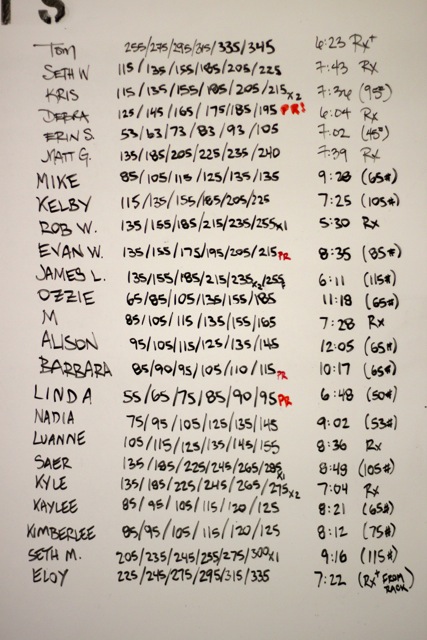 TS
Tom 255/275/295/315/335/345 6:23 Rx+
SETH W 115/135/155/185/205/225 7:43 Rx
KRIS 115/135/155/185/205/215x2 (95#)
DEBRA 125/145/165/175/185/195 PR! 6:04 Rx
ERIN S. 53/63/73/83/93/105 7:02 (45#)
MATT G. 135/185/205/225/235/240 7:39 Rx
MIKE 85/105/115/125/135/135 9:28 (65#)
KELBY 115/135/155/185/205/225 7:25 (105#)
ROB W. 135/155/185/215/235/255x1 5:30 Rx
EVAN W. 135/155/175/195/205/215 PR 8:35 (85#)
JAMES L. 135/155/185/215/235x2/255 6:11 (115#)
OZZIE 65/85/105/135/155/185 11:18 (65#)
M 85/105/115/135/155/165 7:28 Rx
ALISON 95/105/115/125/135/145 12:05 (65#)
BARBARA 85/90/95/105/110/115 PR 10:17 (65#)
LINDA 55/65/75/85/90/95 PR 6:48 (50#)
NADIA 75/95/105/125/135/145 9:02 (53#)
LUANNE 105/115/125/135/145/155 8:36 Rx
SAER 135/185/225/245/265/285x1 8:49 (105#)
KYLE 135/185/225/245/265/275x2 7:04 Rx
KAYLEE 85/95/105/115/120/125 8:21 (65#)
KIMBERLEE 85/95/105/115/120/125 8:12 (75#)
SETH M. 205/235/245/255/275/300x1 9:16 (115#)
ELOY 225/245/275/295/315/335 7:22 (Rx+ FROM RACK)